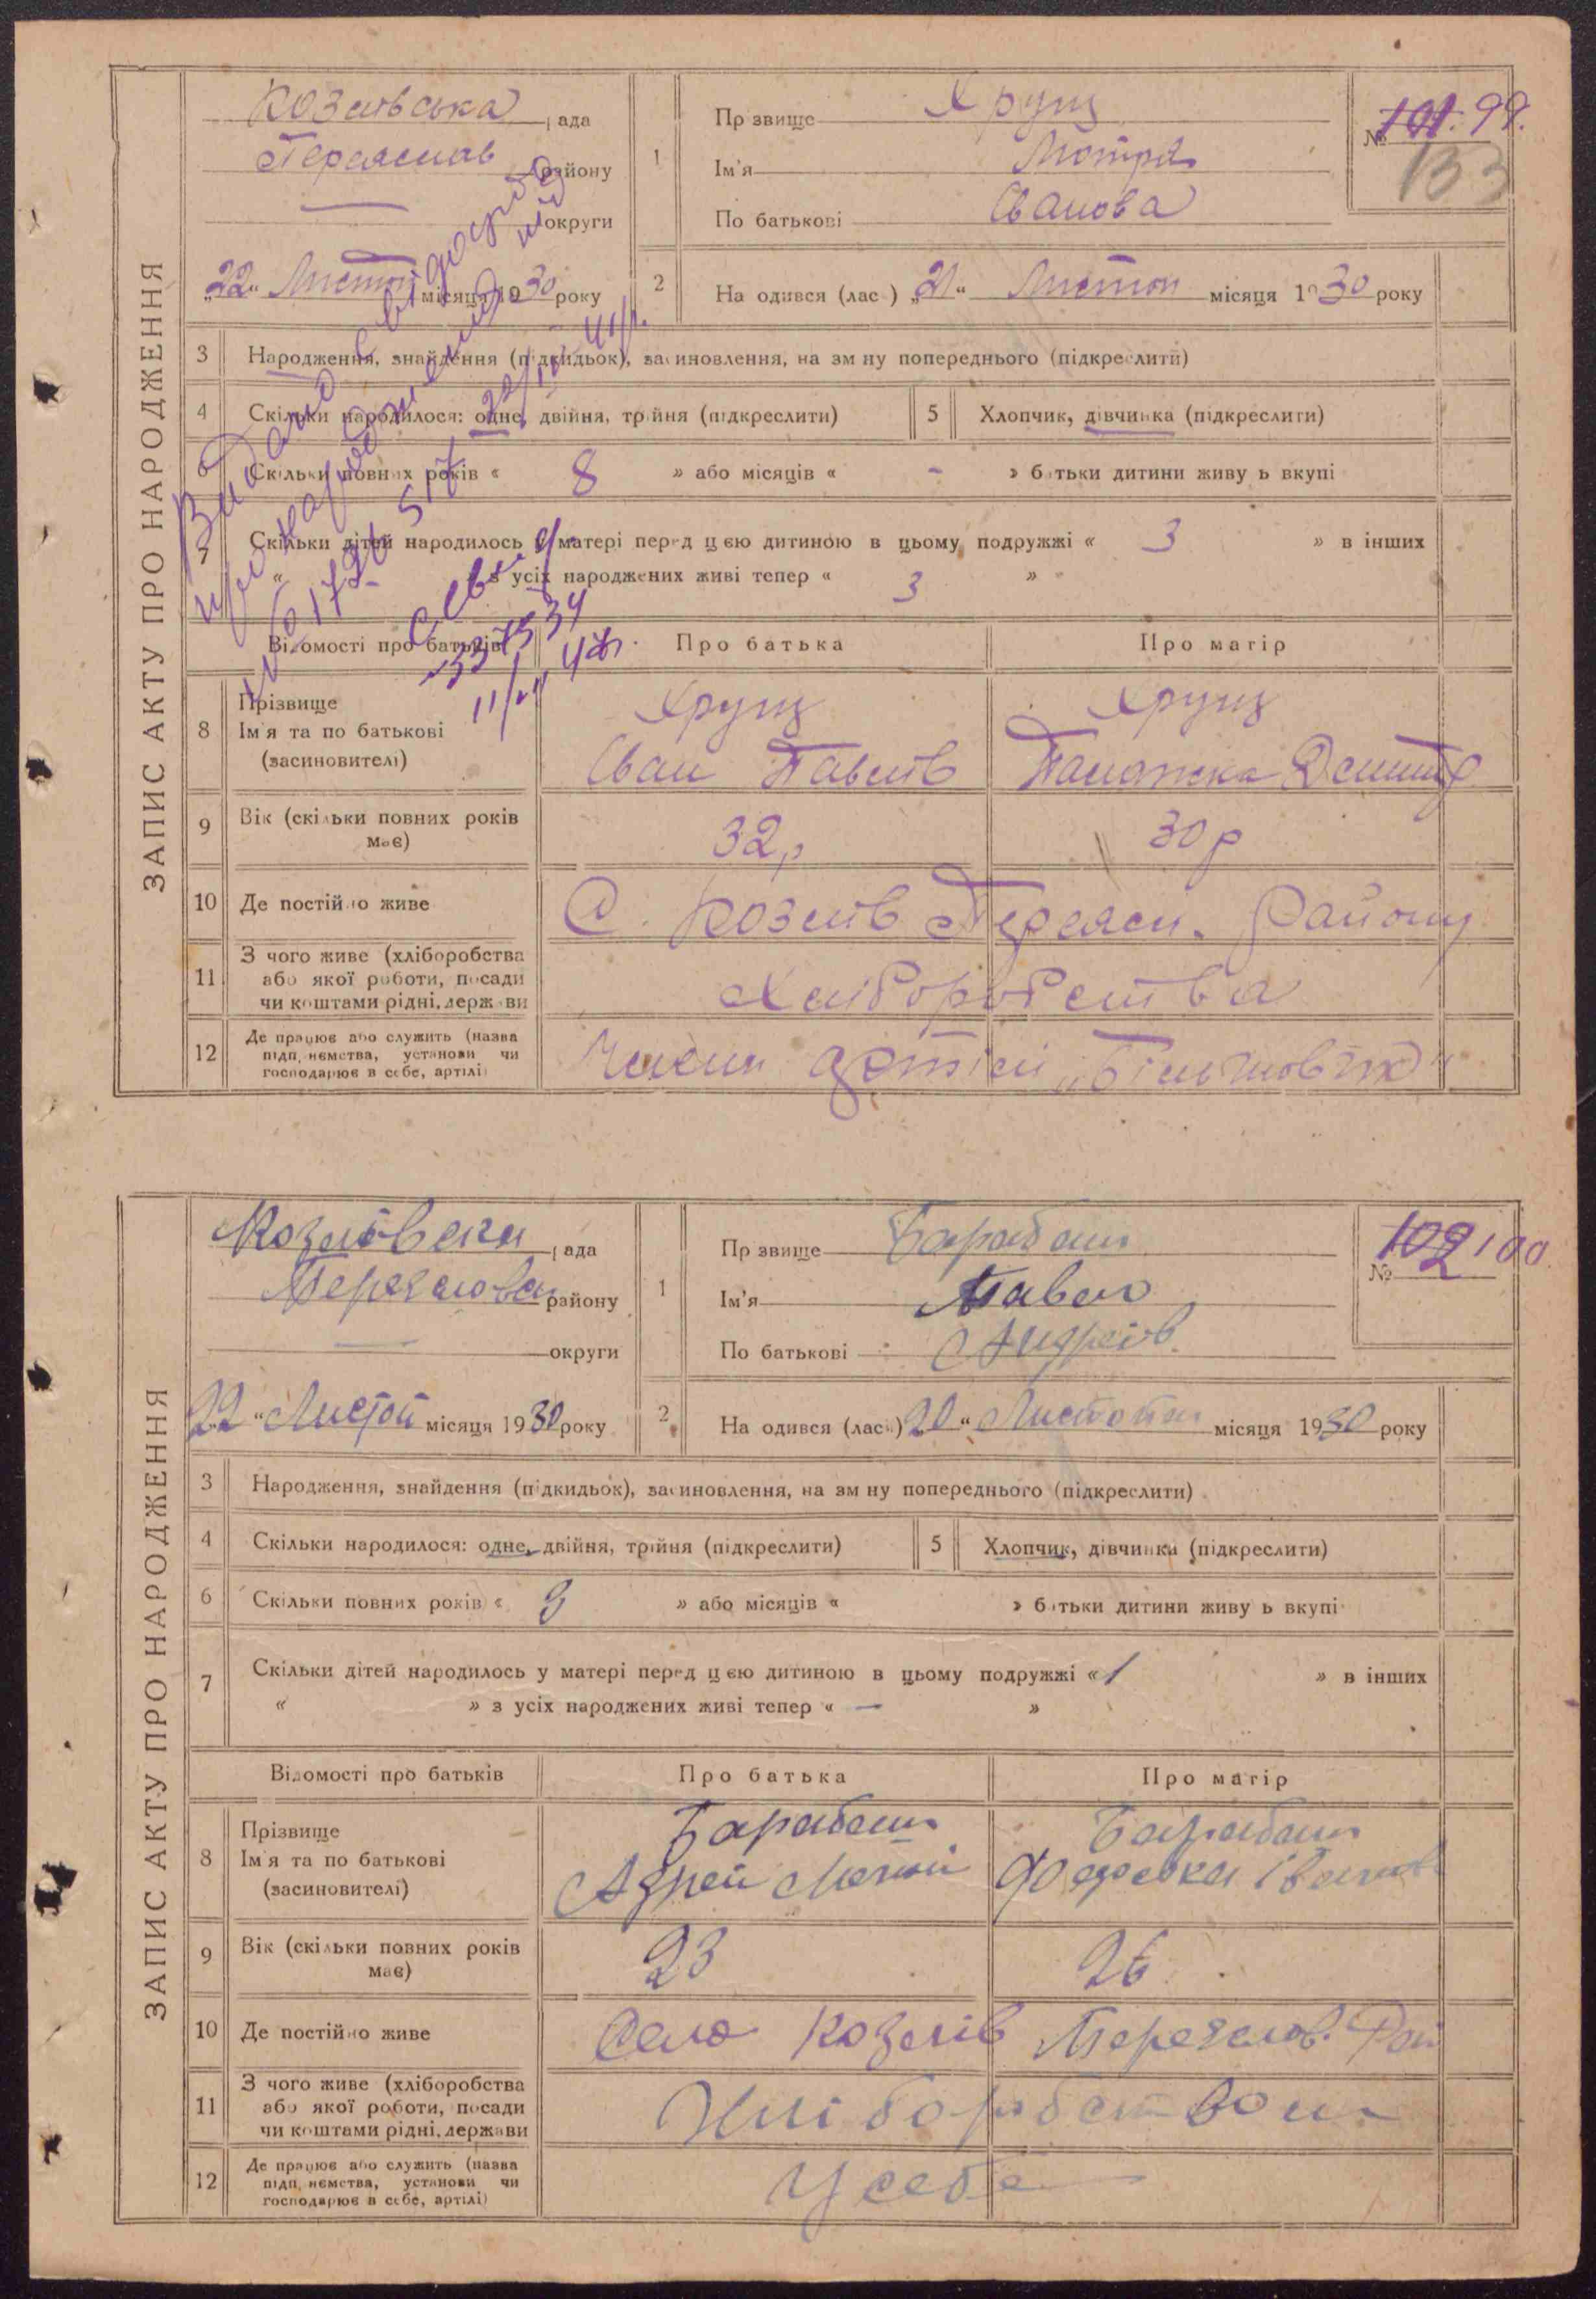 ЗАПИС АКТУ ПРО НАРОДЖЕННЯ
Козлівська рада
Переяслав району
— округи
„22“ Листоп місяця 1930 року
1
Прізвище Хрущ
Ім'я Мотря
По батькові Іванова
№ 101. 99.
133
2 На одився (лас ) „21“ Листоп місяця 1930 року
3 Народження, знайдення (підкидьок), засиновлення, на зм ну попереднього (підкреслити)
4 Скільки народилося: одне, двійня, трійня (підкреслити)
5 Хлопчик, дівчинка (підкреслити)
6 Скільки повних років « 8 » або місяців « - » батьки дитини живу ь вкупі
7 Скільки дітей народилось у матері перед цією дитиною в цьому подружжі « 3 » в інших
« » з усіх народжених живі тепер « 3 »
Видано свідоцтво
про народження
22/IV 41р.
11/IV 47р.
Відомості про батьків Про батька Про матір
8 Прізвище
Ім'я та по батькові
(засиновителі)
Хрущ
Іван Павлів
Хрущ
9 Вік (скільки повних років
має)
32р
30р
10 Де постійно живе
С. Козлів Переясл. Району
11 З чого живе (хліборобства
або якої роботи, посади
чи коштами рідні, держави
Хліборобства
12 Де працює або служить (назва
підп, ємства, установи чи
господарює в себе, артілі)
Член артілі „Більшовік“
ЗАПИС АКТУ ПРО НАРОДЖЕННЯ
Козлівська рада
Переяслов району
— округи
22 “ Листоп місяця 1930 року
1
Прізвище Барабаш
Ім'я Павло
По батькові Андреів.
№ 102 100
2 На одився (лась) 20 “ Листопа місяця 1930 року
3 Народження, знайдення (підкидьок), засиновлення, на зм ну попереднього (підкреслити)
4 Скільки народилося: одне, двійня, трійня (підкреслити)
5 Хлопчик, дівчинка (підкреслити)
6 Скільки повних років « 3 » або місяців « » батьки дитини живу ь вкупі
7 Скільки дітей народилось у матері перед цією дитиною в цьому подружжі « 1 » в інших
« » з усіх народжених живі тепер « — »
Відомості про батьків Про батька Про матір
8 Прізвище
Ім'я та по батькові
(засиновителі)
Барабаш
Адрей
Барабаш
Федоска Іванов
9 Вік (скільки повних років
має)
23
26
10 Де постійно живе
Село Козлів Переяслов. Рай
11 З чого живе (хліборобства
або якої роботи, посади
чи коштами рідні, держави
Хліборобством
12 Де працює або служить (назва
підп, ємства, установи чи
господарює в себе, артілі)
У себе